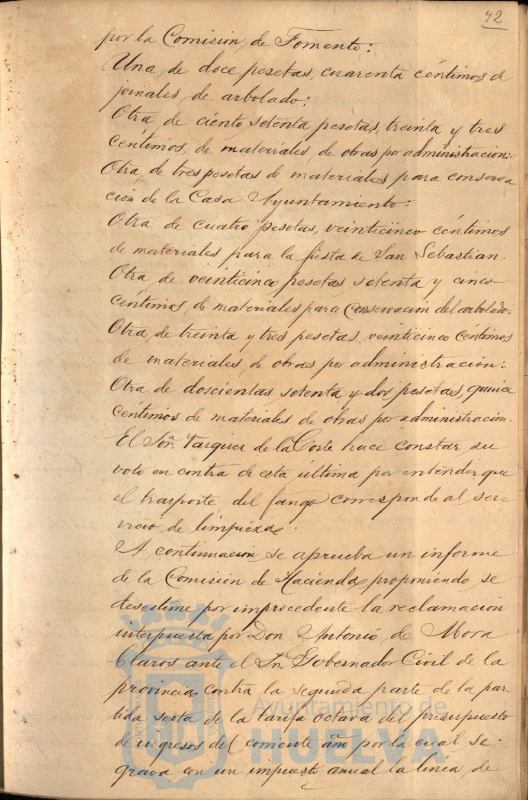 42
por la Comisión de Fomento:
Una de doce pesetas, cuarenta céntimos de
jornales de arbolado:
Otra de ciento setenta pesetas, treinta y tres
céntimos, de materiales de obras por administracion:
Otra de tres pesetas de materiales para conserva
ción de la Casa Ayuntamiento:
Otra de cuatro pesetas, veinticinco céntimos
de materiales para la fiesta de San Sebastian.
Otra de veinticinco pesetas setenta y cinco
centimos de materiales para conservacion del arbolado.
Otra de treinta y tres pesetas, veinticinco centimos
de materiales de obras por administración:
Otra de doscientas setenta y dos pesetas, quince
céntimos de materiales de obras por administracion.
El Sor. de la Corte hace constar su
voto en contra de esta última por entender que
el trasporte del fango corresponde al ser-
vicio de limpieza.
A continuación se aprueba un informe
de la Comisión de Hacienda, proponiendo se
desestime por improcedente la reclamación
interpuesta por Don Antonio de Mora
Claros ante el Sr. Gobernador Civil de la
provincia contra la segunda parte de la par-
tida sesta de la tarifa octava del presupuesto
de ingresos del corriente año por la cual se
grava con un impuesto anual la linea de
Ayuntamiento de
HUELVA